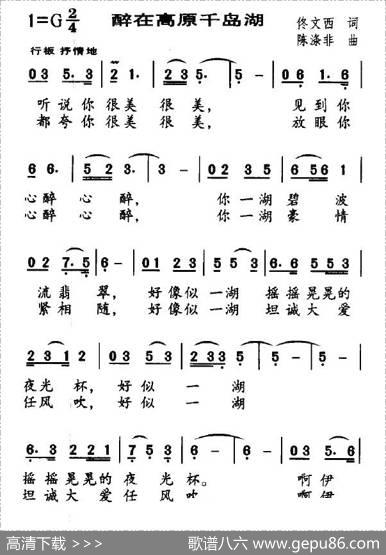 1=G 2/4 醉在高原千岛湖 佟文西 词
陈涤非 曲
行板 抒情地
03 5.3 | 21. | 3235. | 5- | 06 1.6 |
听说你很美 很美, 见到你
都夸你很美 很美, 放眼你
6 6. | 5 2 3. | 3. - | 02 35 | 6561 |
心醉心醉, 你一湖碧波
心醉心醉, 你一湖豪情
02 7.5 | 6- | 0123 | 553 | 6.553 |
流翡翠, 好像似一湖 摇摇晃晃的
紧相随, 好像似一湖 坦诚大爱
2312 | 03 53 | 2335 | 2- | 2- |
夜光杯, 好似一湖
任风吹, 好似一湖
6.3 221 | 7.535 | 6- | 6- | 03 5.6 |
摇摇晃晃的夜光杯。 啊伊
坦诚大爱任风吹 啊伊
高清下载 >>> 歌谱八六 www.gepu86.com